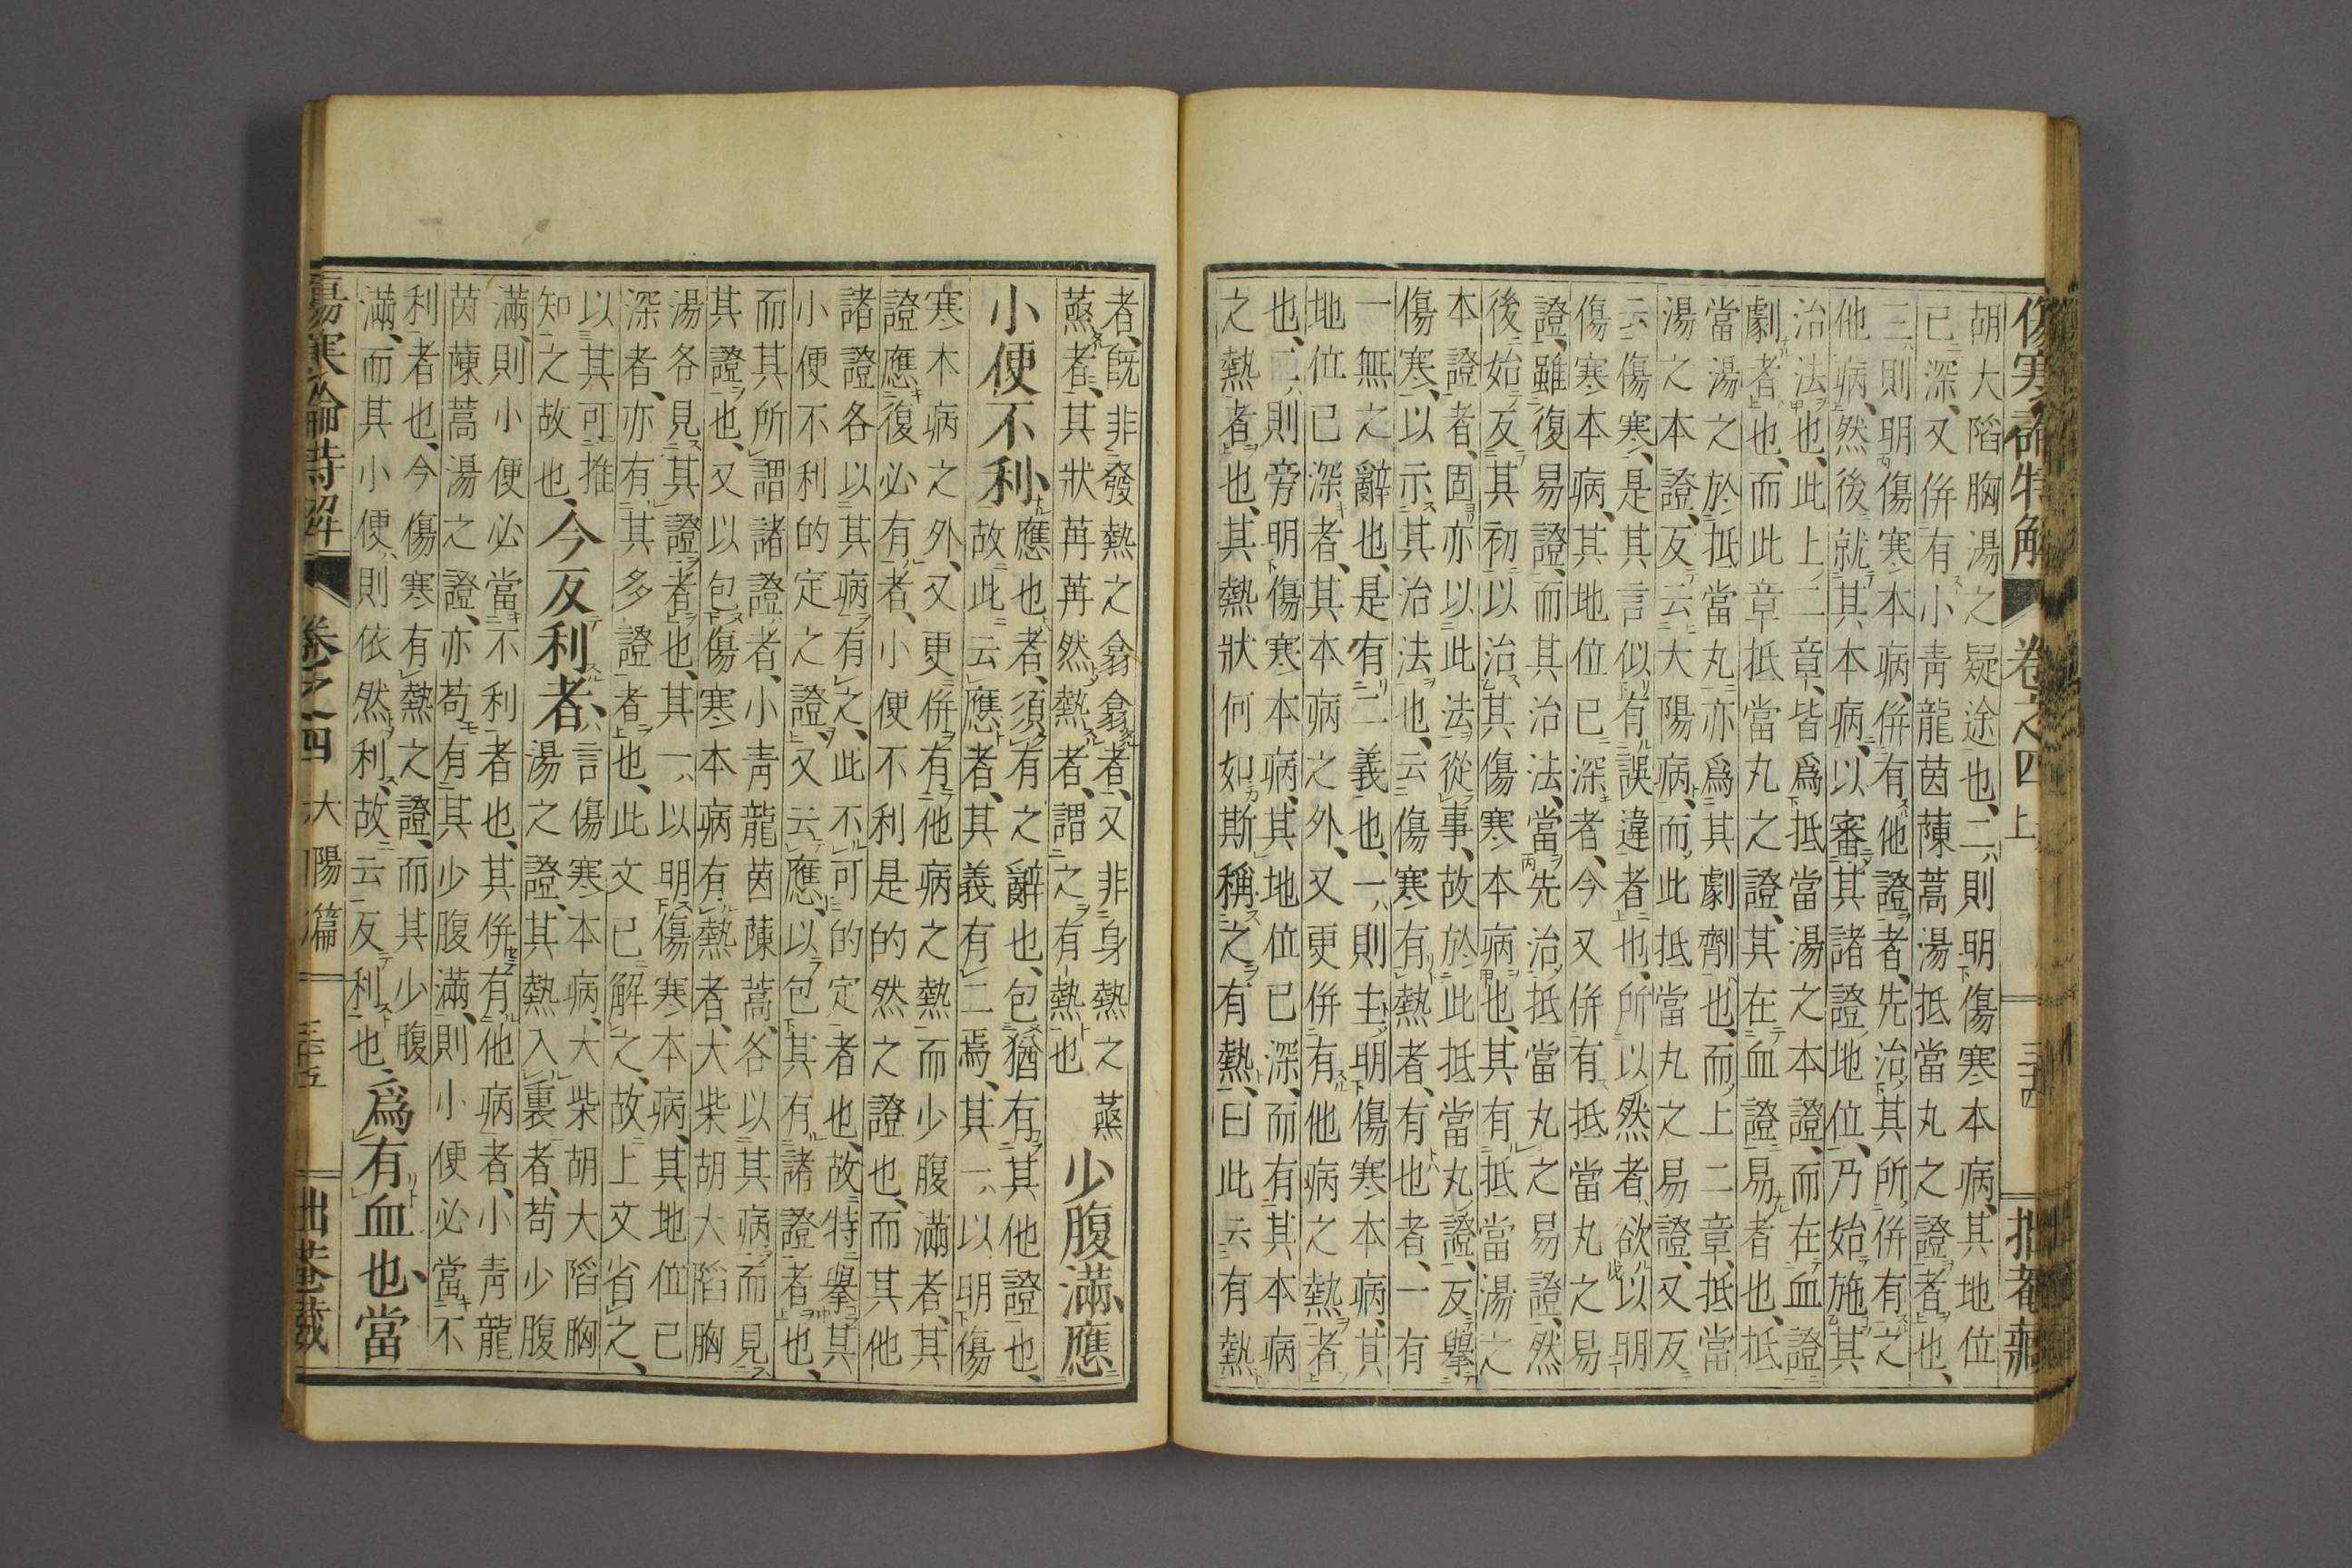 傷寒論特解 卷之四上 三十四 拙菴藏
胡大陷胸湯之疑途也、二則明傷寒本病、其地位
已深、又併有小靑龍茵蔯蒿湯抵當丸之證者也、
三則明傷寒本病、併有他證者、先治其所併有之
他病、然後就其本病、以審其諸證地位、乃始施其
治法也、此上二章、皆爲抵當湯之本證、而在血證
劇者也、而此章抵當丸之證、其在血證易者也、抵
當湯之於抵當丸亦爲其劇劑也、而上二章、抵當
湯之本證、反云大陽病、而此抵當丸之易證、又反
云傷寒、是其言似有誤違者也、所以然者、欲以明
傷寒本病、其地位已深者、今又併有抵當丸之易
證、雖復易證、而其治法、當先治抵當丸之易證、然
後始反其初以治其傷寒本病也、其有抵當湯之
本證者、固亦以此法從事、故於此抵當丸證、反擧
傷寒、以示其治法也、云傷寒有熱者、有也者、一有
一無之辭也、是有二義也、一則主明傷寒本病、其
地位已深者、其本病之外、又更併有他病之熱者
也、二則旁明傷寒本病、其地位已深、而有其本病
之熱者也、其熱狀何如斯稱之有熱、曰此云有熱
者、旣非發熱之翕翕者、又非身熱之蒸
蒸者、其狀苒苒然熱者、謂之有熱也
少腹滿、應
小便不利、
應也者、須有之辭也、包猶有其他證也、
故此云應者、其義有二焉、其一以明傷
寒本病之外、又更併有他病之熱而少腹滿者、其
證應復必有者、小便不利是的然之證也、而其他
諸證各以其病有之、此不可的定者也、故特擧其
小便不利的定之證、又云應、以包其有諸證者也、
而其所謂諸證者、小靑龍茵蔯蒿、各以其病而見
其證也、又以包傷寒本病有熱者、大柴胡大陷胸
湯各見其證者也、其一、以明傷寒本病、其地位已
深者、亦有其多證者也、此文已解之、故上文省之、
以其可推
知之故也、
今反利者、
言傷寒本病、大柴胡大陷胸
湯之證、其熱入裏者、苟少腹
滿、則小便必當不利者也、其併有他病者、小靑龍
茵蔯蒿湯之證、亦苟有其少腹滿、則小便必當不
利者也、今傷寒有熱之證、而其少腹
滿、而其小便、則依然利、故云反利也、
爲有血也、當
傷寒論特解 卷之四 大陽篇 三十五 拙菴藏